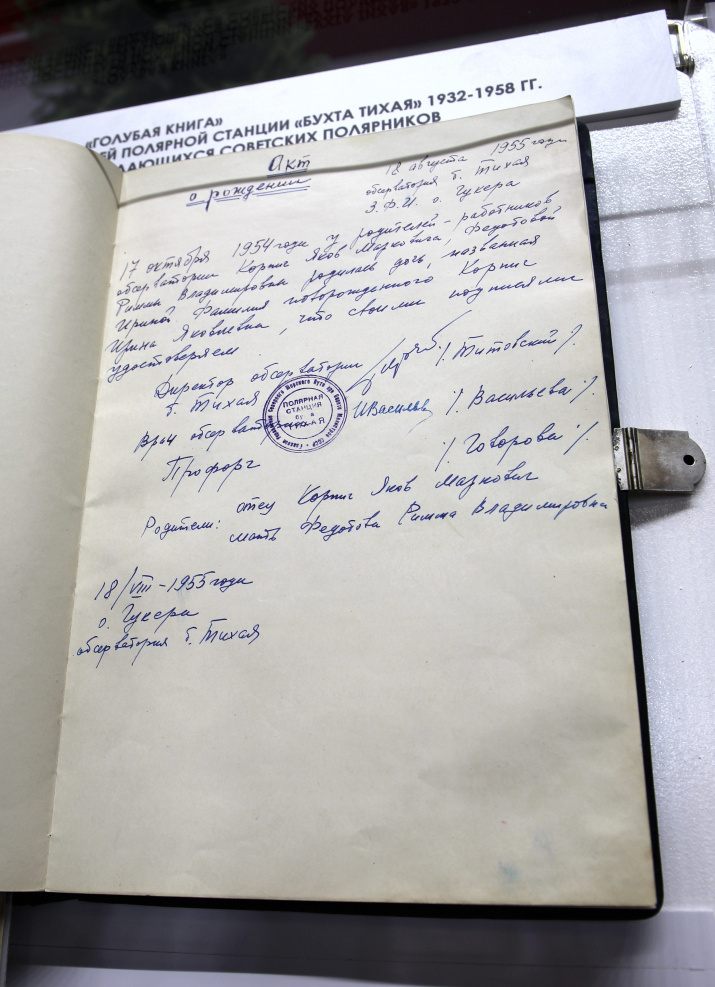 «ГОЛУБАЯ КНИГА»
ЕЙ ПОЛЯРНОЙ СТАНЦИИ «БУХТА ТИХАЯ» 1932-1958 ГГ.
ДАЮЩИХСЯ СОВЕТСКИХ ПОЛЯРНИКОВ
Акт
о рождении
18 августа 1955 года
обсерватория б. Тихая
З.Ф.И. о. Гукера
17 октября 1954 года у родителей - работников
обсерватории Корпис Яков Маркович, Федотовой
Римма Владимировна родилась дочь, названная
Ириной. Фамилия новорожденного Корпис
Ирина Яковлевна, что своими подписями
удостоверяем
Директор обсерватории
б. Тихая /. Титовский /.
Врач обсерватории ИВасильев /. Васильева /.
Профорг /. Говорова /.
ПОЛЯРНАЯ
СТАНЦИЯ
Родители: отец Корпис Яков Маркович
мать Федотова Римма Владимировна
18/VIII - 1955 года
о. Гукера
обсерватория б. Тихая